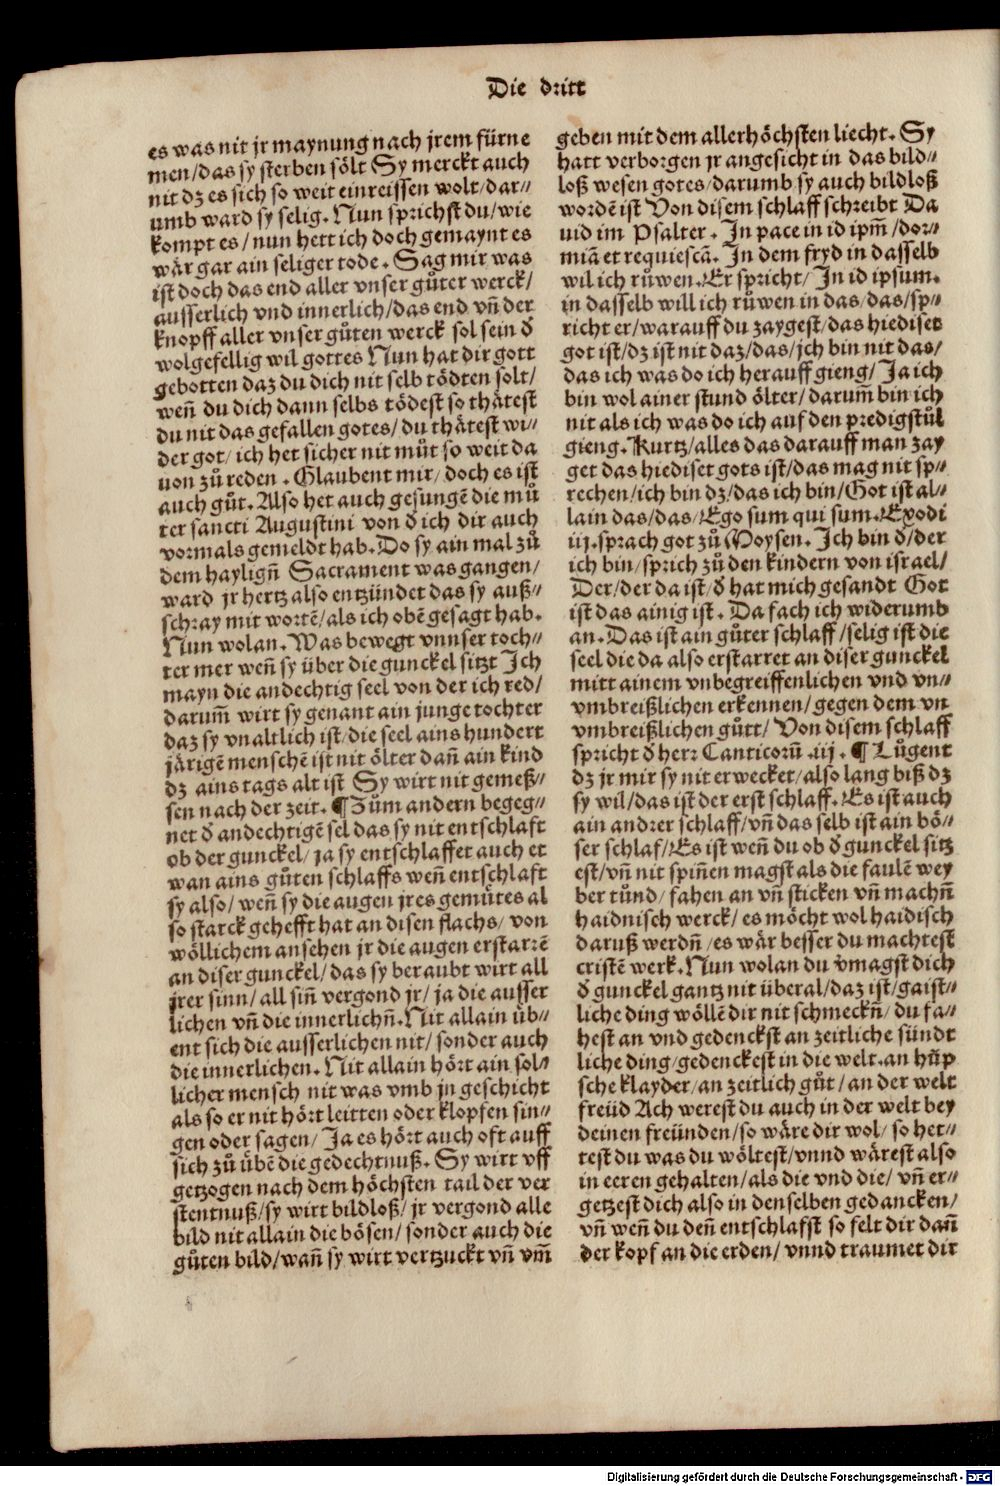 Die dritt
es was nit jr maynung nach jrem fürne
men/das sy sterben sölt Sy merckt auch
nit dz es sich so weit einreissen wolt/dar⸗
umb ward sy selig. Nun sprichst du/wie
kompt es/nun hett ich doch gemaynt es
wär gar ain seliger tode. Sag mir was
ist doch das end aller vnser gůter werck/
ausserlich vnd innerlich/das end vñ der
knopff aller vnser gůten werck sol sein d̕
wolgefellig wil gottes Nun hat dir gott
gebotten daz du dich nit selb tödten solt/
weñ du dich dann selbs tödest so thätest
du nit das gefallen gotes/du thätest wi⸗
der got/ich het sicher nit můt so weit da
uon zů reden. Glaubent mir/doch es ist
auch gůt. Also het auch gesungē die mů
ter sancti Augustini von d̕ ich dir auch
vormals gemeldt hab. Do sy ain mal zů
dem hayligñ Sacrament was gangen/
ward jr hertz also entzündet das sy auß⸗
schray mit wortē/als ich obē gesagt hab.
Nun wolan. Was bewegt vnnser toch⸗
ter mer weñ sy über die gunckel sitzt Jch
mayn die andechtig seel von der ich red/
darum̃ wirt sy genant ain junge tochter
daz sy vnaltlich ist/die seel ains hundert
järigē menschē ist nit ölter dañ ain kind
dz ains tags alt ist Sy wirt nit gemeß⸗
sen nach der zeit. ¶Zům andern begeg⸗
net d̕ andechtigē sel das sy nit entschlaft
ob der gunckel/ja sy entschlaffet auch et
wan ains gůten schlaffs weñ entschlaft
sy also/weñ sy die augen jres gemütes al
so starck gehefft hat an disen flachs/von
wöllichem ansehen jr die augen erstarrē
an diser gunckel/das sy beraubt wirt all
jrer sinn/all siñ vergond jr/ja die ausser
lichen vñ die innerlichñ. Nit allain üb⸗
ent sich die ausserlichen nit/sonder auch
die innerlichen. Nit allain hört ain sol⸗
licher mensch nit was vmb jn geschicht
als so er nit hört leitten oder klopfen sin⸗
gen oder sagen/Ja es hört auch oft auff
sich zů übē die gedechtnuß. Sy wirt vff
getzogen nach dem höchsten tail der ver
stentnuß/sy wirt bildloß/jr vergond alle
bild nit allain die bösen/sonder auch die
gůten bild/wañ sy wirt vertzuckt vñ vm̃
geben mit dem allerhöchsten liecht. Sy
hatt verborgen jr angesicht in das bild⸗
loß wesen gotes/darumb sy auch bildloß
wordē ist Von disem schlaff schreibt Da
uid im Psalter. Jn pace in id ipm̃/dor⸗
miā et requiescā. Jn dem fryd in dasselb
wil ich růwen. Er spricht/Jn id ipsum.
in dasselb will ich růwen in das/das/sp⸗
richt er/warauff du zaygest/das hiediset
got ist/dz ist nit daz/das/jch bin nit das/
das ich was do ich herauff gieng/Ja ich
bin wol ainer stund ölter/darum̃ bin ich
nit als ich was do ich auf den predigstůl
gieng. Kurtz/alles das darauff man zay
get das hiediset gots ist/das mag nit sp⸗
rechen/ich bin dz/das ich bin/Got ist al⸗
lain das/das/Ego sum qui sum. Exodi
iij. sprach got zů Moysen. Jch bin d̕/der
ich bin/sprich zů den kindern von israel/
Der/der da ist/d̕ hat mich gesandt Got
ist das ainig ist. Da fach ich widerumb
an. Das ist ain gůter schlaff/selig ist die
seel die da also erstarret an diser gunckel
mitt ainem vnbegreiffenlichen vnd vn⸗
vmbreißlichen erkennen/gegen dem vn
vmbreißlichen gůtt/Von disem schlaff
spricht d̕ herr Canticorū .iij. ¶Lůgent
dz jr mir sy nit erwecket/also lang biß dz
sy wil/das ist der erst schlaff. Es ist auch
ain andrer schlaff/vñ das selb ist ain bö⸗
ser schlaf/Es ist weñ du ob d̕ gunckel sitz
est/vñ nit spiñen magst als die faulē wey
ber tůnd/fahen an vñ sticken vñ machñ
haidnisch werck/es möcht wol haidisch
daruß werdñ/es wär besser du machtest
cristē werk. Nun wolan du v̕magst dich
d̕ gunckel gantz nit überal/daz ist/gaist⸗
liche ding wöllē dir nit schmeckñ/du fa⸗
hest an vnd gedenckst an zeitliche sündt
liche ding/gedenckest in die welt. an hüp
sche klayder/an zeitlich gůt/an der welt
freüd Ach werest du auch in der welt bey
deinen freünden/so wäre dir wol/so het⸗
test du was du wöltest/vnnd wärest also
in eeren gehalten/als die vnd die/vñ er⸗
getzest dich also in denselben gedancken/
vñ weñ du deñ entschlafst so felt dir dañ
der kopf an die erden/vnnd traumet dir
Digitalisierung gefördert durch die Deutsche Forschungsgemeinschaft - DFG